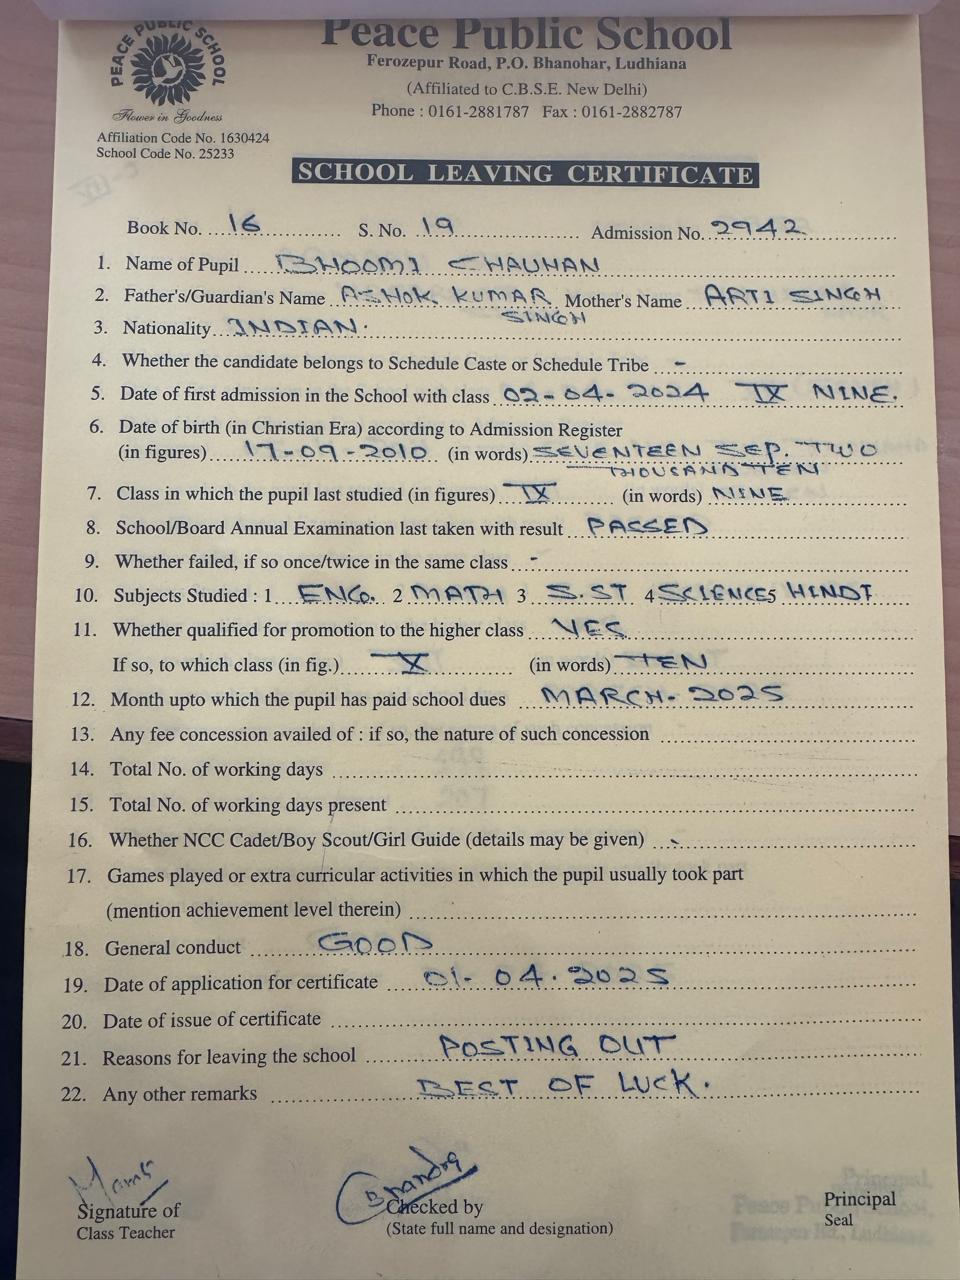 PEACE PUBLIC SCHOOL
Flower in Goodness
Affiliation Code No. 1630424
School Code No. 25233
Peace Public School
Ferozepur Road, P.O. Bhanohar, Ludhiana
(Affiliated to C.B.S.E. New Delhi)
Phone : 0161-2881787 Fax : 0161-2882787
SCHOOL LEAVING CERTIFICATE
Book No. 16 S. No. 19 Admission No. 2942
1. Name of Pupil BHOOMI CHAUHAN
2. Father's/Guardian's Name ASHOK KUMAR Mother's Name ARTI SINGH
SINGH
3. Nationality INDIAN.
4. Whether the candidate belongs to Schedule Caste or Schedule Tribe -
5. Date of first admission in the School with class 02-04-2024 IX NINE.
6. Date of birth (in Christian Era) according to Admission Register
(in figures) 17-09-2010 (in words) SEVENTEEN SEP. TWO
THOUSAND TEN
7. Class in which the pupil last studied (in figures) IX (in words) NINE
8. School/Board Annual Examination last taken with result PASSED
9. Whether failed, if so once/twice in the same class -
10. Subjects Studied : 1 ENG. 2 MATH 3 S.ST 4 SCIENCE 5 HINDI
11. Whether qualified for promotion to the higher class YES
If so, to which class (in fig.) X (in words) TEN
12. Month upto which the pupil has paid school dues MARCH-2025
13. Any fee concession availed of : if so, the nature of such concession
14. Total No. of working days
15. Total No. of working days present
16. Whether NCC Cadet/Boy Scout/Girl Guide (details may be given) -
17. Games played or extra curricular activities in which the pupil usually took part
(mention achievement level therein)
18. General conduct GOOD
19. Date of application for certificate 01-04.2025
20. Date of issue of certificate
21. Reasons for leaving the school POSTING OUT
22. Any other remarks BEST OF LUCK.
Signature of
Class Teacher
Checked by
(State full name and designation)
Principal
Seal